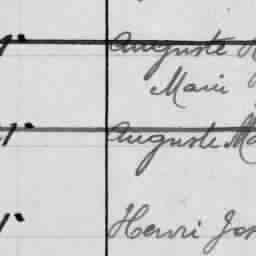 1° Auguste
Marie
1° Auguste Ma
1° Henri Jos